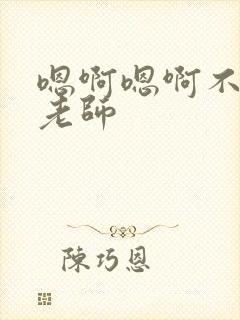 嗯啊嗯啊不
老师
陳巧恩